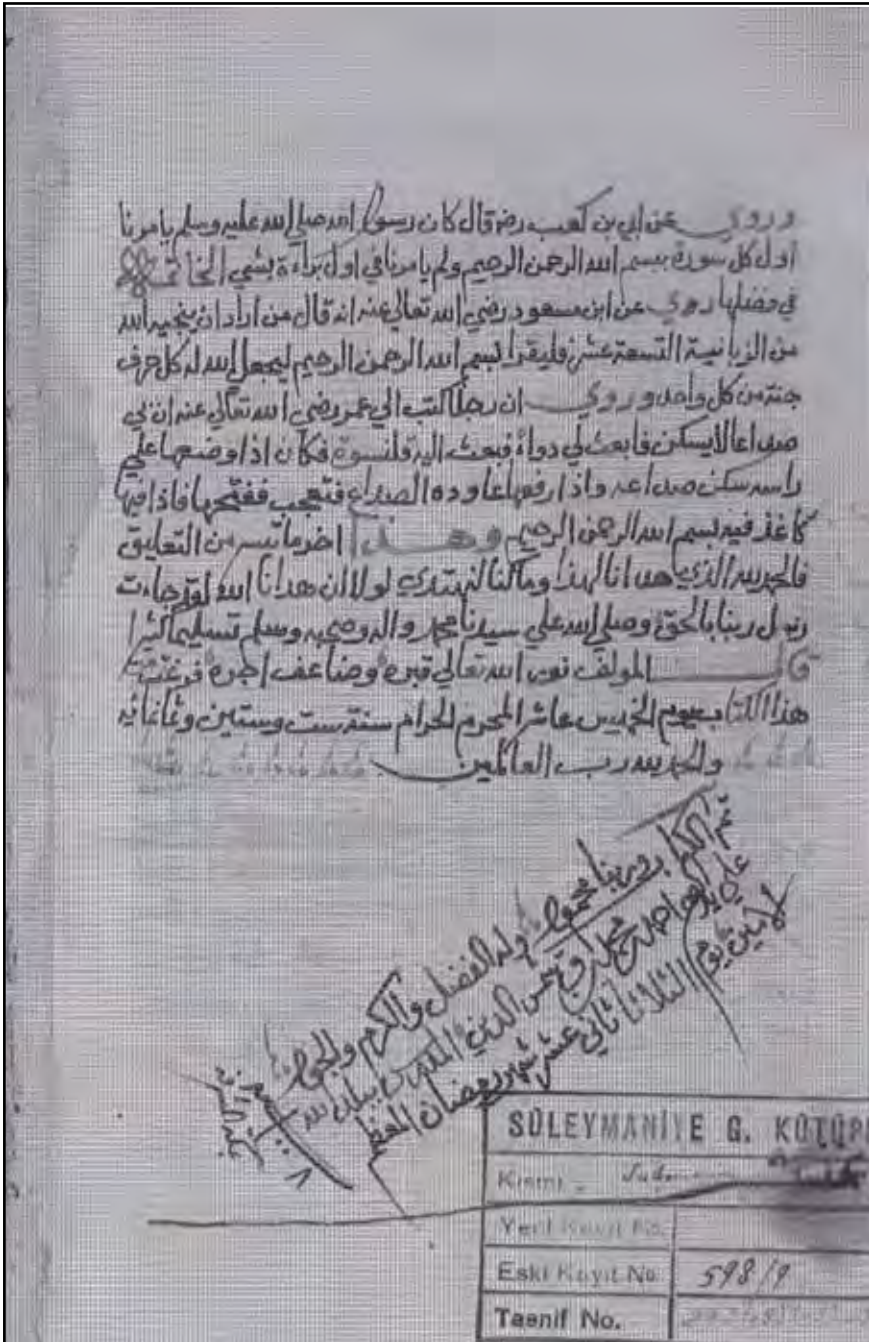 وروي عن ابي بن كعب رضه قال كان رسول الله صلي الله عليه وسلم يامرنا
اول كل سورة ببسم الله الرحمن الرحيم ولم يامرنا في اول براءة بشي الخاتمة
في فضلها روي عن ابن مسعود رضي الله تعالي عنه انه قال من اراد ان ينجيه الله
من الزبانية التسعة عشر فليقرا بسم الله الرحمن الرحيم ليجعل الله له كل حرف
جنة من كل واحد وروي ان رجلا كتب الي عمر رضي الله تعالي عنه ان بي
صداعا لا يسكن فابعث لي دواء فبعث اليه قلنسوة فكان اذا وضعها علي
راسه سكن صداعه واذا رفعها عاوده الصداع فتعجب ففتحها فاذا فيها
كاغذ فيه بسم الله الرحمن الرحيم وهذا اخر ما تيسر من التعليق
فالحمد لله الذي هدانا لهذا وما كنا لنهتدي لولا ان هدانا الله لقد جاءت
رسل ربنا بالحق وصلي الله علي سيدنا محمد واله وصحبه وسلم تسليما كثيرا
قال المولف نور الله تعالي قبره وضاعف اجره فرغت من
هذا الكتاب يوم الخميس عاشر المحرم الحرام سنة ست وستين وثمانمائة
والحمد لله رب العالمين
تم الكتاب وربنا محمود وله الفضل والكرم والجود
علي يد شمس الدين القدسي
يوم الثلاثا ثاني عشر شهر رمضان المعظم
SÜLEYMANİYE G. KÜTÜP
Kısmı
Yeni Kayıt No.
Eski Kayıt No. 598/9
Tasnif No.